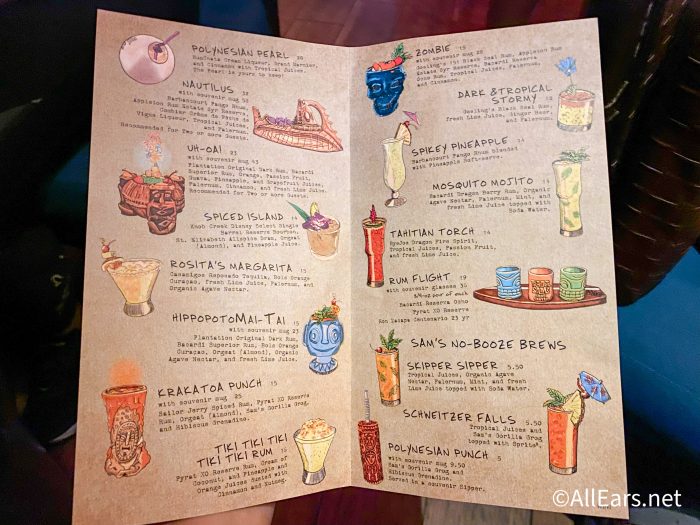 POLYNESIAN PEARL 20
RumChata Cream Liqueur, Grand Marnier,
and Cinnamon with Tropical Juices.
The Pearl is yours to keep!
NAUTILUS 32
with souvenir mug 52
Barbancourt Pango Rhum,
Appleton Rum Estate 8yr Reserve,
Combier Crème de Peche de
Vigne Liqueur, Tropical Juices,
and Falernum.
Recommended for Two or more Guests.
UH-OA! 23
with souvenir mug 43
Plantation Original Dark Rum, Bacardi
Superior Rum, Orange, Passion Fruit,
Guava, Pineapple, and Grapefruit Juices,
Falernum, Cinnamon, and fresh Lime Juice.
Recommended for Two or more Guests.
SPICED ISLAND 14
Knob Creek Disney Select Single
Barrel Reserve Bourbon,
St. Elizabeth Allspice Dram, Orgeat
(Almond), and Pineapple Juice.
ROSITA'S MARGARITA 15
Casamigos Reposado Tequila, Bols Orange
Curaçao, fresh Lime Juice, Falernum, and
Organic Agave Nectar.
HIPPOPOTOMAI-TAI 15
with souvenir mug 23
Plantation Original Dark Rum,
Bacardi Superior Rum, Bols Orange
Curaçao, Orgeat (Almond), Organic
Agave Nectar, and fresh Lime Juice.
KRAKATOA PUNCH 15
with souvenir mug 25
Sailor Jerry Spiced Rum, Pyrat XO Reserve
Rum, Orgeat (Almond), Sam's Gorilla Grog,
and Hibiscus Grenadine.
TIKI TIKI TIKI
TIKI TIKI RUM
Pyrat XO Reserve Rum, Cream of
Coconut, and Pineapple and
Orange Juices Dusted with
Cinnamon and Nutmeg.
ZOMBIE 15
with souvenir mug
Gosling's 151 Black Seal Rum, Appleton Rum
Estate 8yr Reserve, Bacardi Reserve
Ocho Rum, Tropical Juices, Falernum,
and Cinnamon.
DARK & TROPICAL
STORMY
Gosling's Black Seal Rum,
fresh Lime Juice, Ginger Beer,
and Falernum.
SPIKEY PINEAPPLE 14
Barbancourt Pango Rhum blended
with Pineapple Softserve.
MOSQUITO MOJITO
Bacardi Dragon Berry Rum, Organic
Agave Nectar, Falernum, Mint, and
fresh Lime Juice topped with
Soda Water.
TAHITIAN TORCH 14
RyeJos Dragon Fire Spirit,
Tropical Juices, Passion Fruit,
and fresh Lime Juice.
RUM FLIGHT 19
with souvenir glasses
3/4-oz pour of each
Bacardi Reserva Ocho
Pyrat XO Reserve
Ron Zacapa Centenario 23 yr
SAM'S NO-BOOZE BREWS
SKIPPER SIPPER 5.50
Tropical Juices, Organic Agave
Nectar, Falernum, Mint, and fresh
Lime Juice topped with
Soda Water.
SCHWEITZER FALLS 5.50
Tropical Juices and
Sam's Gorilla Grog
topped with Sprite®.
POLYNESIAN PUNCH 5
with souvenir mug 9.50
Sam's Gorilla Grog and
Hibiscus Grenadine.
Served in a souvenir Sipper.
©AllEars.net